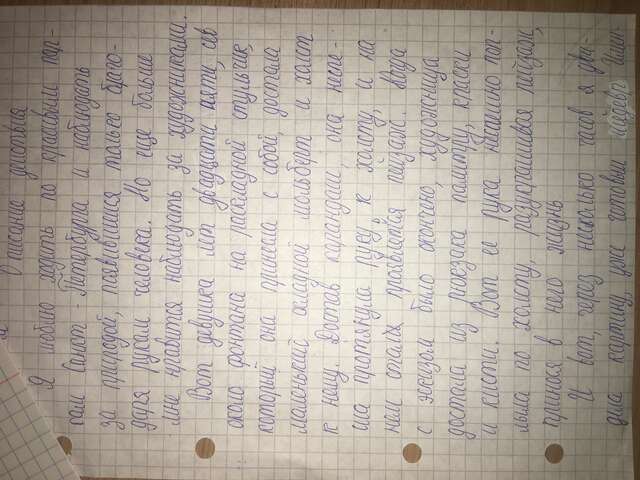 Описание действия
Я люблю ходить по красивым пар-
кам Санкт-Петербурга и наблюдать
за природой, появившимся только благо-
даря рукам человека. Но еще больше
мне нравится наблюдать за художниками.
Вот девушка лет двадцати пяти, сев
около фонтана на раскладной стульчик,
который она принесла с собой, достала
маленький складной мольберт и холст
к нему. Достав карандаш, она неспе-
ша протянула руку к холсту, и на
нем стал проявлятся пейзаж. Когда
с эскизом было окончено, художница
достала из рюкзака палитру, краски
и кисти. Вот ее рука неспешно поп-
лыла по холсту, разукрашивая пейзаж,
принося в него жизнь
И вот, через несколько часов я уви-
дила картину, уже готовый шедевр. Имен-